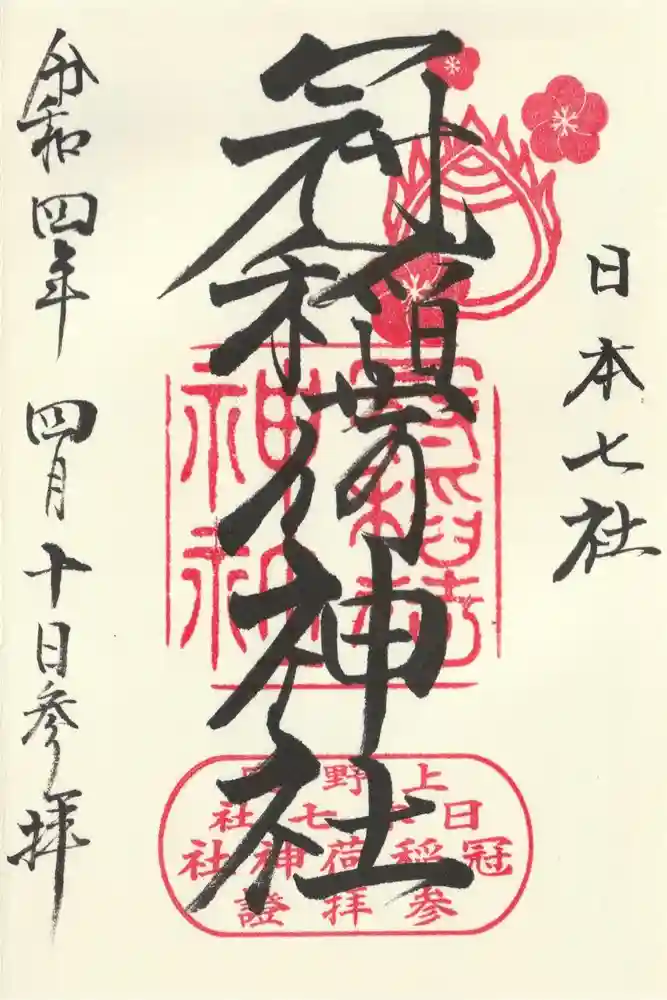 日本七社
冠稲荷神社
令和四年 四月十日参拝
冠稲荷神社
上野国
日本七社
冠稲荷神社
参拝證